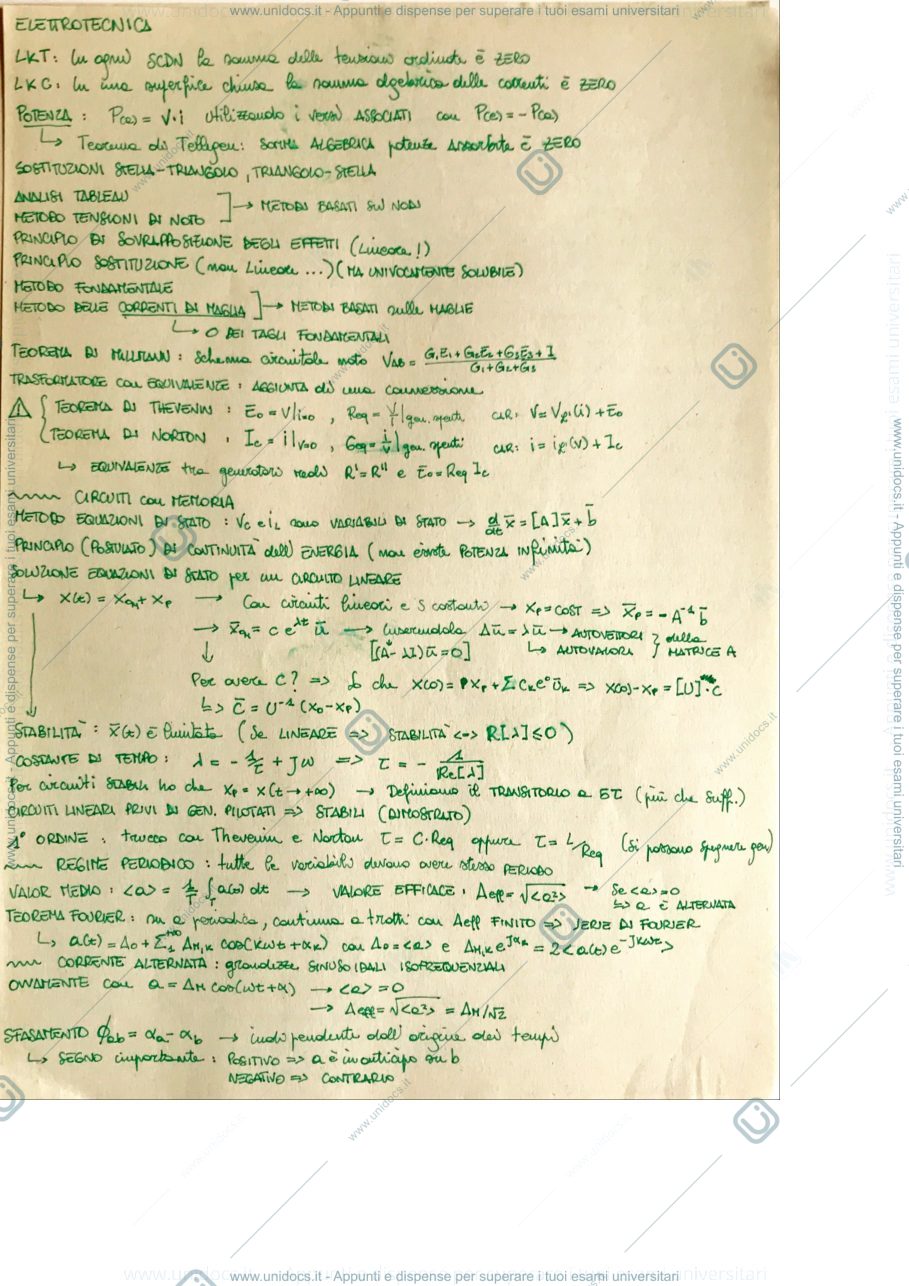 www.unidocs.it - Appunti e dispense per superare i tuoi esami universitari
ELETTROTECNICA
LKT: In ogni SCDN la somma delle tensioni ordinate è ZERO
LKC: In una superfice chiusa la somma algebrica delle correnti è ZERO
POTENZA: P(a) = V·i utilizzando i versi ASSOCIATI con P(e) = -P(a)
↳ Teorema di Tellegen: SOMMA ALGEBRICA potenze Assorbite è ZERO
SOSTITUZIONI STELLA-TRIANGOLO, TRIANGOLO-STELLA
ANALISI TABLEAU
METODO TENSIONI DI NODO → METODI BASATI SUI NODI
PRINCIPIO DI SOVRAPPOSIZIONE DEGLI EFFETTI (Lineare!)
PRINCIPIO SOSTITUZIONE (non Lineare ...) (MA UNIVOCAMENTE SOLUBILE)
METODO FONDAMENTALE
METODO DELLE CORRENTI DI MAGLIA → METODI BASATI sulle MAGLIE
↳ O DEI TAGLI FONDAMENTALI
TEOREMA DI MILLMANN: Schema circuitale noto VAB = G1E1+G2E2+G3E3+I / G1+G2+G3
TRASFORMATORE con EQUIVALENZE: AGGIUNTA di una connessione
⚠ TEOREMA DI THEVENIN: E0 = V|i=0, Req = V/i|gen. spenti CAR: V = Vℓ'(i) + E0
TEOREMA DI NORTON: Ic = i|v=0, Geq = i/v|gen. spenti CAR: i = iℓ'(v) + Ic
↳ EQUIVALENZE tra generatori reali R' = R'' e E0 = Req Ic
CIRCUITI con MEMORIA
METODO EQUAZIONI DI STATO: Vc e iL sono VARIABILI DI STATO → d/dt x̄ = [A]x̄ + b̄
PRINCIPIO (POSTULATO) DI CONTINUITÀ dell'ENERGIA (non esiste POTENZA infinita)
SOLUZIONE EQUAZIONI DI STATO per un CIRCUITO LINEARE
↳ X(t) = XOM + XP → Con circuiti lineari e S costanti → XP = COST => X̄P = -A⁻¹ b̄
→ X̄OM = c e^λt ū → Inserendola Aū = λū → AUTOVETTORI
↓ [(A-λI)ū = 0] ↳ AUTOVALORI } della MATRICE A
Per avere C? => So che X(0) = XP + Σ CK e⁰ ŪK => X(0) - XP = [U]·C
↳ C̄ = U⁻¹ (X0 - XP)
STABILITÀ: X̄(t) è limitata (Se LINEARE => STABILITÀ <-> R[λ] ≤ 0)
COSTANTE DI TEMPO: λ = -1/τ + Jω => τ = - 1/Re[λ]
Per circuiti STABILI ho che XP = X(t→+∞) → Definiamo il TRANSITORIO a 5τ (più che suff.)
CIRCUITI LINEARI PRIVI DI GEN. PILOTATI => STABILI (DIMOSTRATO)
1° ORDINE: trucco con Thevenin e Norton τ = C·Req oppure τ = L/Req (Si possono spegnere gen)
REGIME PERIODICO: tutte le variabili devono avere stesso PERIODO
VALOR MEDIO: <a> = 1/T ∫ a(t) dt → VALORE EFFICACE: Aeff = √<a²> → Se <a> = 0
↳ a è ALTERNATA
TEOREMA FOURIER: su a periodica, continua a tratti con Aeff FINITO => SERIE DI FOURIER
↳ a(t) = A0 + Σ₁^+∞ AM,K COS(Kωt + αK) con A0 = <a> e AM,K e^Jαk = 2<a(t)e^-Jkωt>
CORRENTE ALTERNATA: grandezze SINUSOIDALI ISOFREQUENZIALI
OVVIAMENTE con a = AM cos(ωt + α) → <a> = 0
→ Aeff = √<a²> = AM/√2
SFASAMENTO ϕab = αa - αb → indipendente dall'origine dei tempi
↳ SEGNO importante: POSITIVO => a è in anticipo su b
NEGATIVO => CONTRARIO
www.unidocs.it - Appunti e dispense per superare i tuoi esami universitari